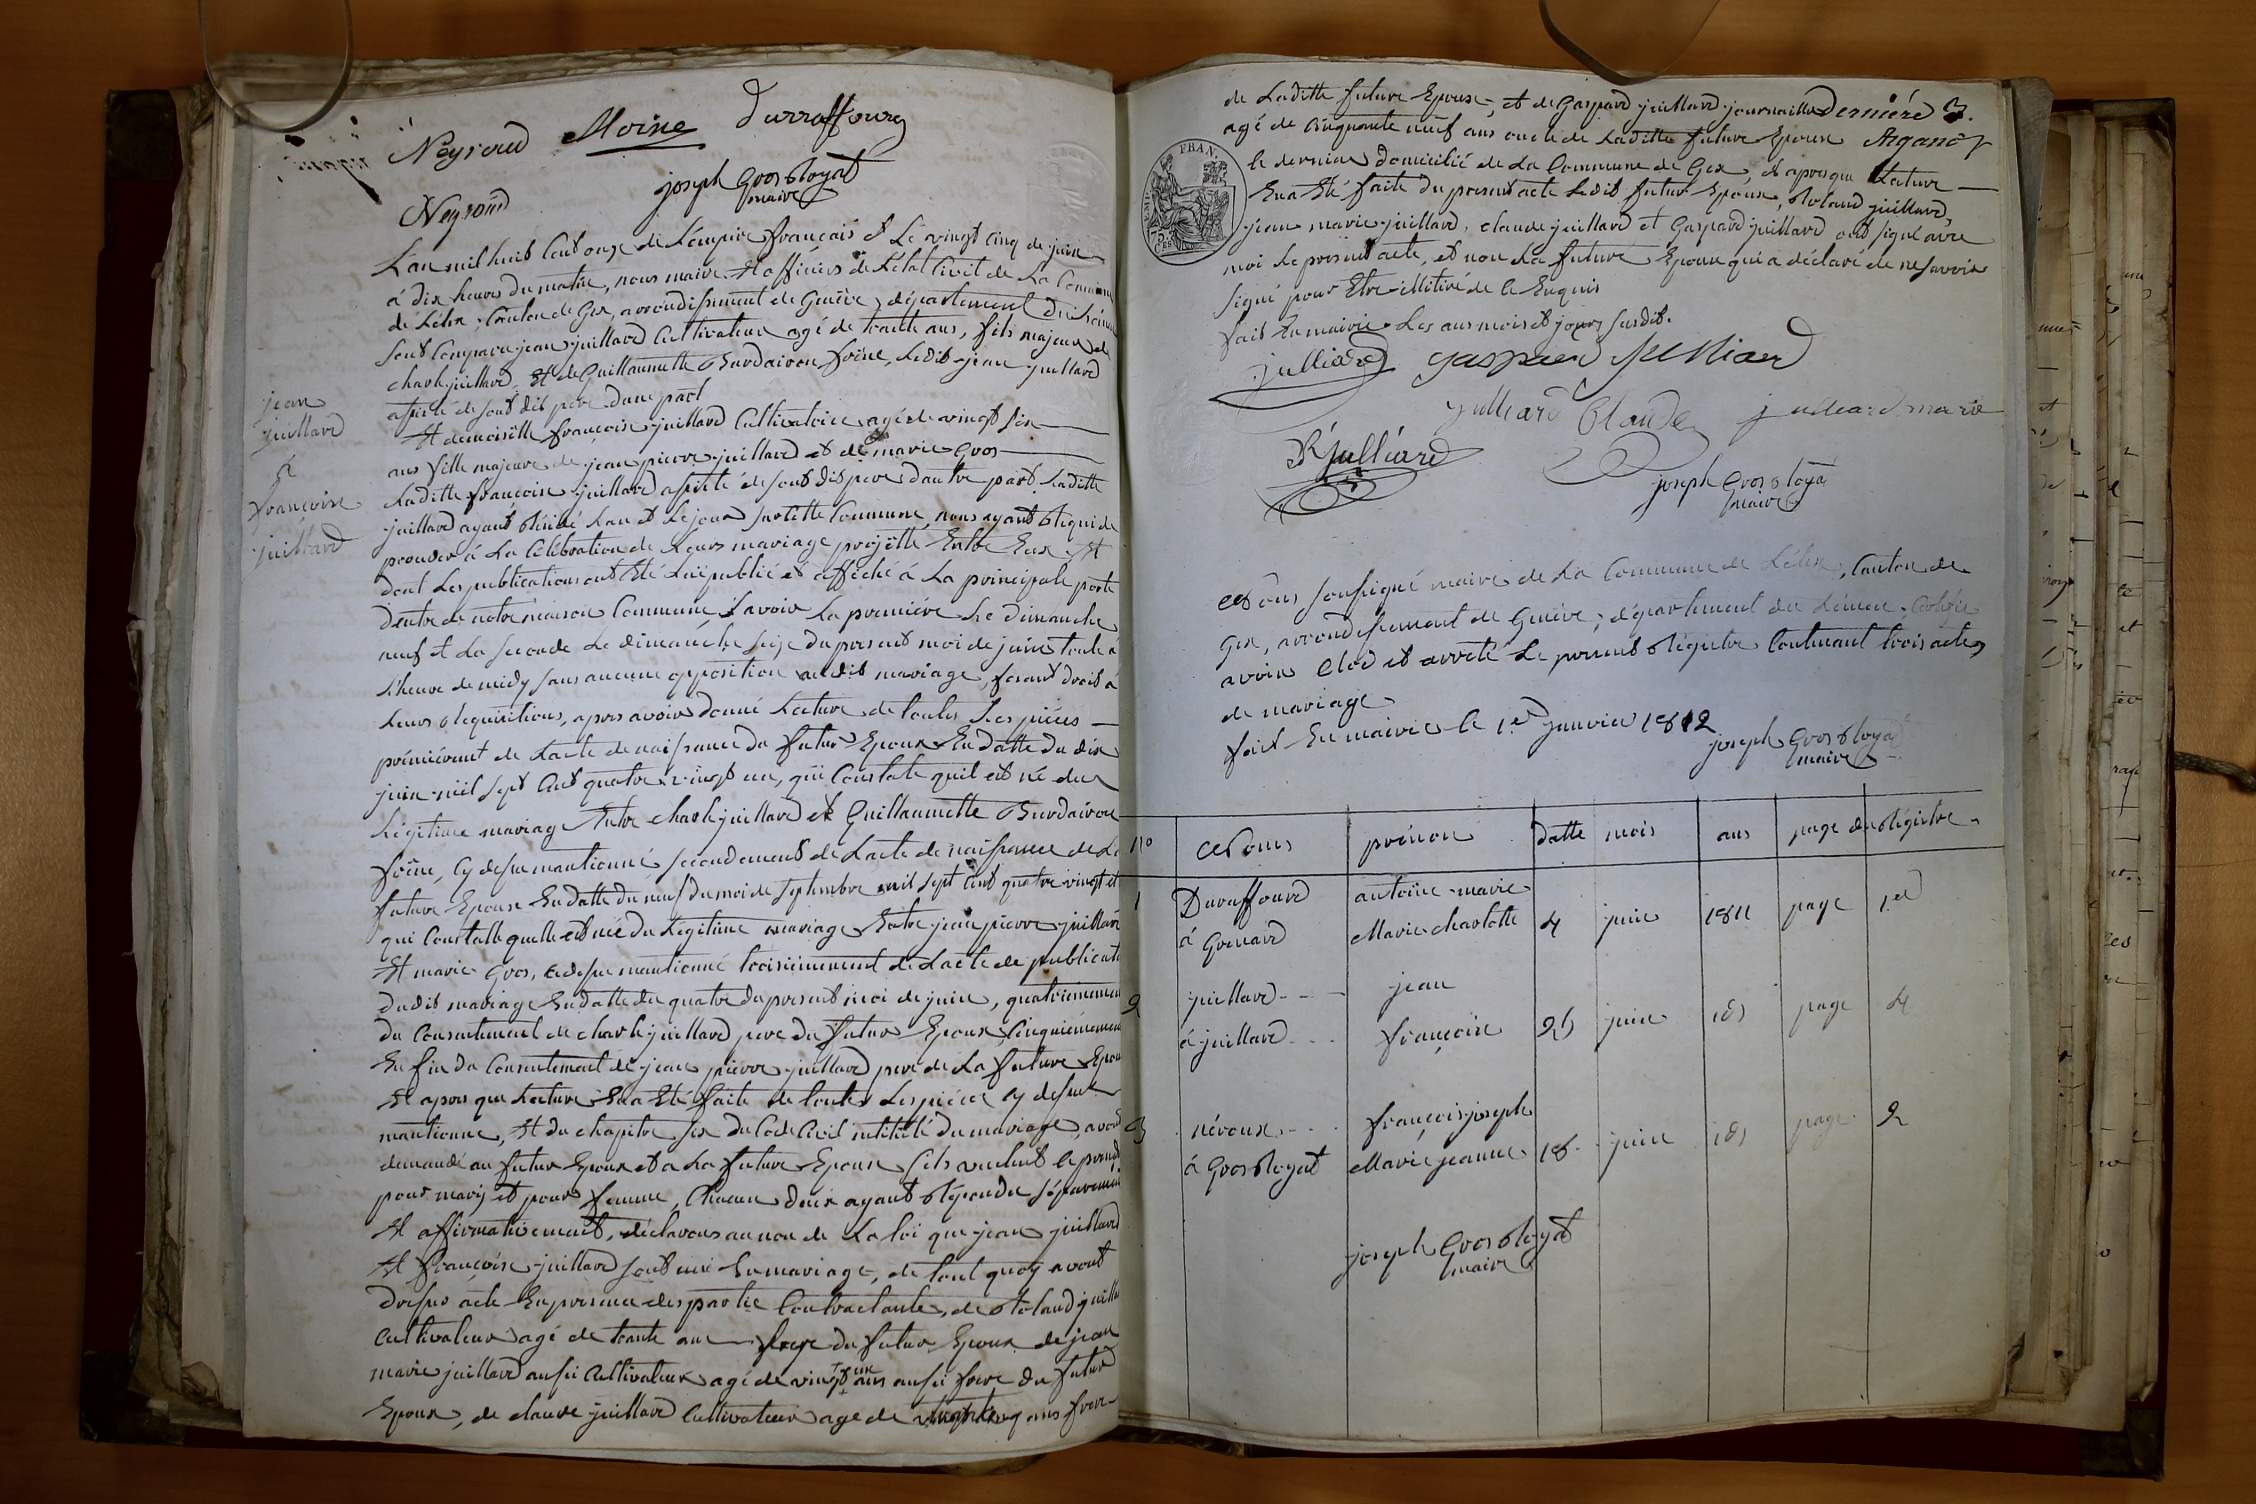 Neyroud Moine Durraffourg
joseph Grosroyat
maire
Neyroud
L'an mil huit Cent onze de L'empire français et Le vingt cinq de juin
á dix heures du matin, nous maire et officiers de L'état Civil de La Commune
de Lélex, Canton de Gex, arrondissement de Genève, département du Léman
sont Comparu jean juillard Cultivateur agé de trante ans, fils majeur de
charle juillard et de Guillaumette Burdairon foine, Ledit jean juillard
assisté de sont dit pere d'une part
Et demoiselle françoise juillard Cultivatrice agé de vingt six
ans fille majeure de jean pierre juillard et de marie Gros
Laditte françoise juillard assisté de sont dit pere d'autre part Laditte
jean
juillard
á
françoise
juillard
juillard ayant résidé L'an et Le jour sur Cette Commune, nous ayant requi de
proceder á La Célébration de Leurs mariage projetté Entre Eux Et
dont Les publications ont Eté Lu publié et affiché á La principale porte
d'entré de notre maison Commune, savoir La premiére Le dimanche
neuf et La seconde Le dimanche seize du present moi de juin toute á
L'heure de midy sans aucune opposition audit mariage, fesant droit á
Leurs requisitions, apres avoir donné Lecture de toutes Les piéces
prémiérement de L'acte de naissance du futur Epoux En datte du dix
juin mil sept Cent quatre vingt un, qui Constate quil est né du
Légitime mariage Entre charle juillard et Guillaumette Burdairon
foine, Cy dessu mantionné, secondement de L'acte de naissance de La
future Epouse En datte du neuf du moi de septembre mil sept Cent quatre vingt et
qui Constatte quelle est née du Légitime mariage Entre jean pierre juillard
Et marie Gros, Cidessu mantionné troisiémement de L'acte de publicati
dudit mariage En datte du quatre du present moi de juin, quatriémement
du Consentement de charle juillard pere du futur Epoux, Cinquiémement
En fin du Consentement de jean pierre juillard pere de La future Epouse
Et apres que Lecture En a Eté faite de toutes Les piéces Cy dessu
mantionné, Et du chapitre six du Code Civil intitulé du mariage, avons
demandé au futur Epoux et a La future Epouse s'ils veulent se prendre
pour mary et pour femme, Chacun d'eux ayant répondu séparement
Et affirmativement, déclarons au nom de La loi que jean juillard
Et françoise juillard sont uni En mariage, de tout quoy avont
dressé acte En presence des partie Contractante, de roland juillard
Cultivateur agé de trante ans frere du futur Epoux de jean
marie juillard aussi Cultivateur agé de vingt un ans aussi frere du futur
Epoux, de claude juillard Cultivateur agé de vingt cinq ans frere
de Laditte future Epouse, et de Gaspard juillard journaillier derniere 3.
agé de Cinquante neuf ans oncle de Laditte future Epouse
Le dernier domicilié de La Commune de Gex, et apres que Lecture
En a Eté faite du present acte Ledit futur Epoux, roland juillard,
jean marie juillard, claude juillard et Gaspard juillard ont signé avec
moi Le present acte, et non La future Epouse qui a déclaré de ne savoir
signé pour Etre illitiré de Ce Enquis
fait En mairie Les an mois et jours susdit.
julliard gaspard julliard
julliard Claude julliard marie
R julliard
joseph Grosroyat
maire
Nous soussigné maire de La Commune de Lélex, Canton de
Gex, arrondissement de Genève, département du Léman, Certifie
avoir Clos et arreté Le present régistre Contenant trois actes
de mariage
fait En mairie le 1er janvier 1812
joseph Grosroyat
maire
No Noms prénon datte mois ans page du régistre
1 Duraffourd antoine marie
á Grenard Marie charlotte 4 juin 1811 page 1er
2 juillard jean
á juillard françoise 25 juin 181 page 4
3 néroux françois joseph
á Grosroyat Marie jeanne 18 juin 181 page 2
joseph Grosroyat
maire